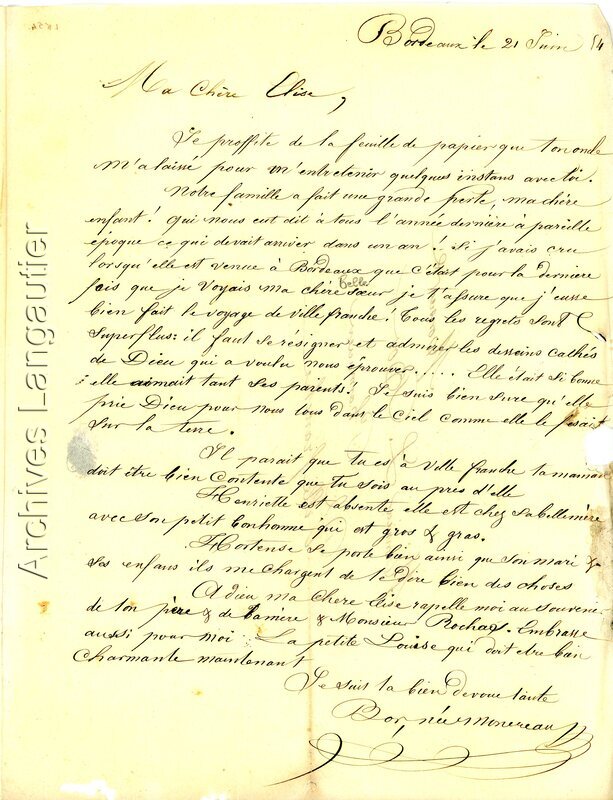 1854
Bordeaux le 21 Juin 54
Ma chère Elise,
Je proffite de la feuille de papier que ton oncle
m'a laissé pour m'entretenir quelques instans avec toi.
Notre famille a fait une grande perte, ma chère
enfant! qui nous eut dit à tous l'année dernière à pareille
époque ce qui devait arriver dans un an! Si j'avais cru
lorsqu'elle est venue à Bordeaux que c'était pour la dernière
fois que je voyais ma chère belle sœur je t'assure que j'eusse
bien fait le voyage de ville franche! Tous les regrets sont
superflus: il faut se résigner et admirer les desseins cachés
de Dieu qui a voulu nous éprouver..... Elle était si bonne
elle aimait tant ses parents! Je suis bien sure qu'elle
prie Dieu pour nous tous dans le Ciel comme elle le fesait
sur la terre.
Il parait que tu es à Ville franche ta maman
doit être bien contente que tu sois au près d'elle
Henriette est absente elle est chez sa belle mère
avec son petit bonhomme qui est gros & gras.
Hortense se porte bien ainsi que son mari &
ses enfans ils me chargent de te dire bien des choses
A dieu ma chere Elise rappelle moi au souvenir
de ton père & de ta mère & Monsieur Rochas. Embrasse
aussi pour moi La petite Louise qui doit etre bien
charmante maintenant
Je suis ta bien devoué tante
Bor, née Monereau
Archives Langautier